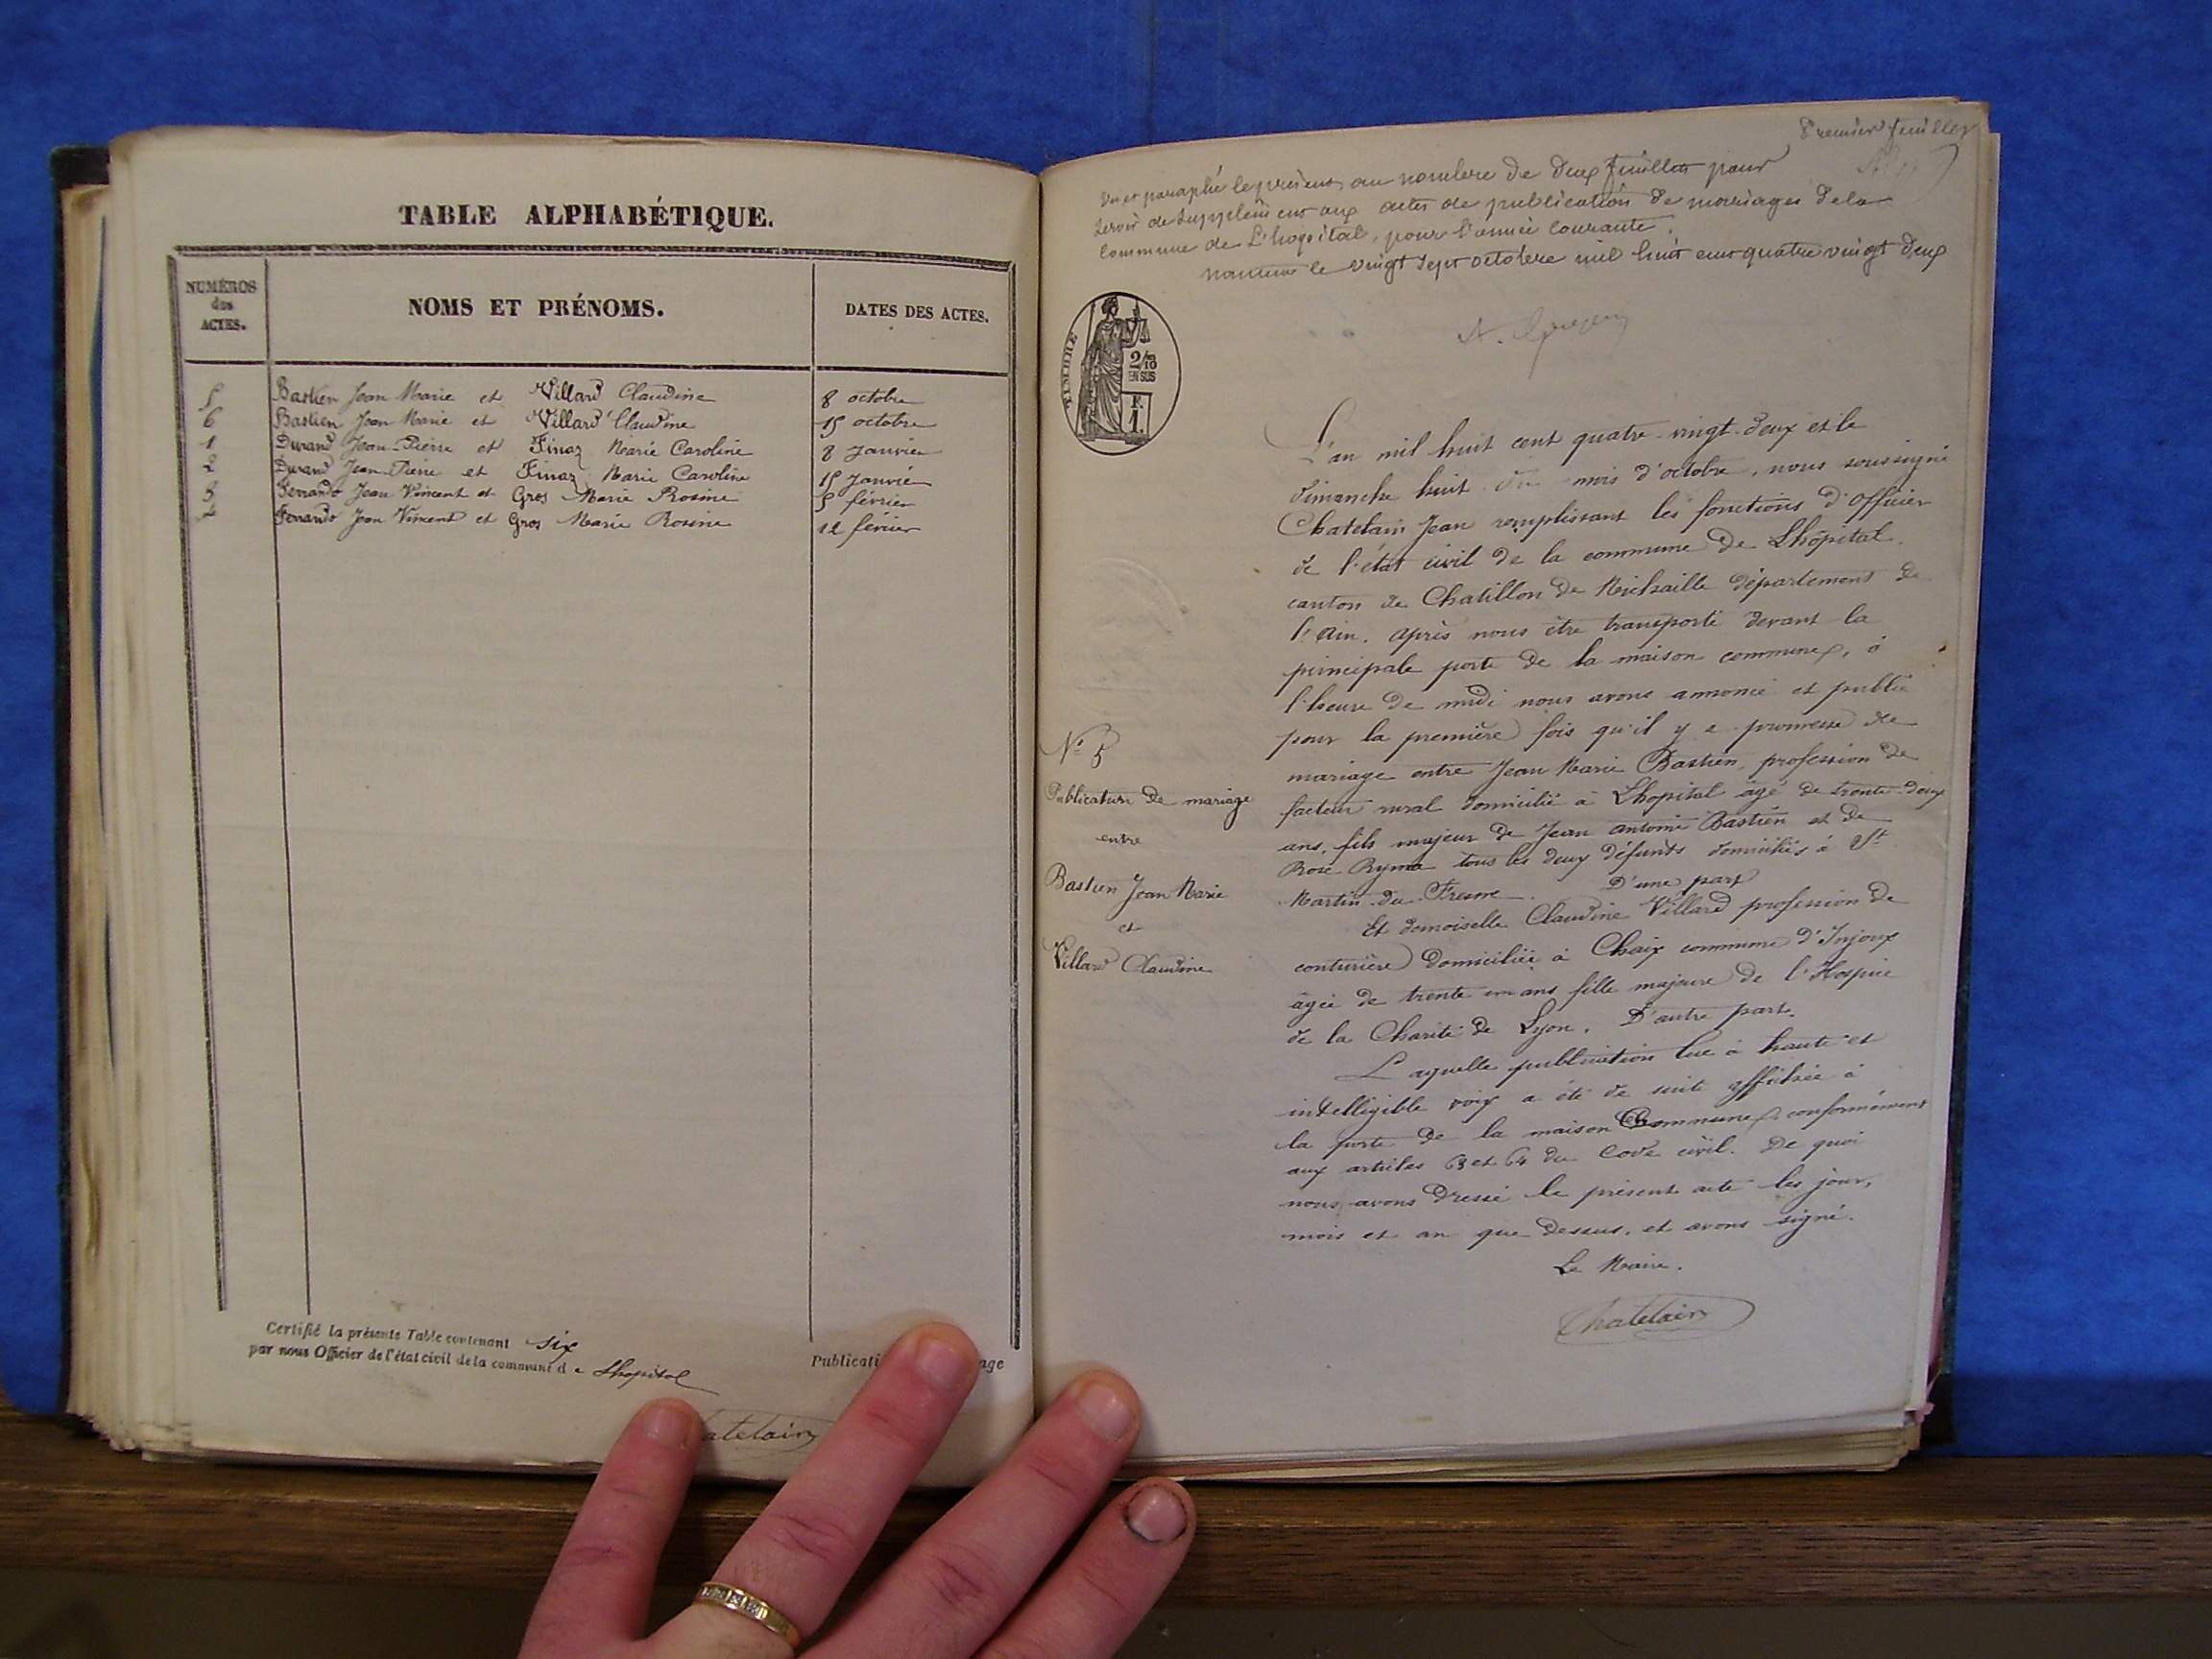 TABLE ALPHABÉTIQUE.
NUMÉROS
des
ACTES.
NOMS ET PRÉNOMS.
DATES DES ACTES.
5 Bastien Jean Marie et Villard Claudine 8 octobre
6 Bastien Jean Marie et Villard Claudine 15 octobre
1 Durand Jean-Pierre et Finaz Marie Caroline 8 Janvier
2 Durand Jean-Pierre et Finaz Marie Caroline 15 Janvié
3 Ferrando Jean Vincent et Gros Marie Rosine 5 février
Ferrando Jean Vincent et Gros Marie Rosine 12 février
Certifié la présente Table contenant six
par nous Officier de l'état civil de la commune de Lhopital
Publicati age
atelain
Premier feuillet
Vu et paraphé le présent au nombre de deux feuillets pour
servir de supplément aux actes de publication de mariages de la
commune de L'hopital, pour l'année courante.
Nantua le vingt sept octobre mil huit cent quatre vingt deux
TIMBRE
2/10
EN SUS
F.
1.
L'an mil huit cent quatre-vingt-deux et le
dimanche huit du mois d'octobre, nous soussigné
Chatelain Jean remplissant les fonctions d'Officier
de l'état civil de la commune de Lhôpital.
canton de Chatillon de Michaille département de
l'Ain. Après nous être transporté devant la
principale porte de la maison commune, à
l'heure de midi nous avons annoncé et publié
pour la première fois qu'il y a promesse de
mariage entre Jean Marie Bastien, profession de
facteur rural domicilié à Lhopital âgé de trente-deux
ans, fils majeur de Jean antoine Bastien et de
Rose tous les deux défunts domiciliés à St
Martin-du-Fresne. D'une part
Et demoiselle Claudine Villard profession de
couturière domiciliée à Chaix commune d'Injoux
âgée de trente un ans fille majeure de l'Hospice
de la Charité de Lyon. D'autre part.
Laquelle publication lue à haute et
intelligible voix a été de suite affichée à
la porte de la maison Commune, conformément
aux articles 63 et 64 du Code civil. De quoi
nous avons dressé le présent acte les jour,
mois et an que dessus. et avons signé.
Le Maire.
Chatelain
N° 5
Publication de mariage
entre
Bastien Jean Marie
et
Villard Claudine